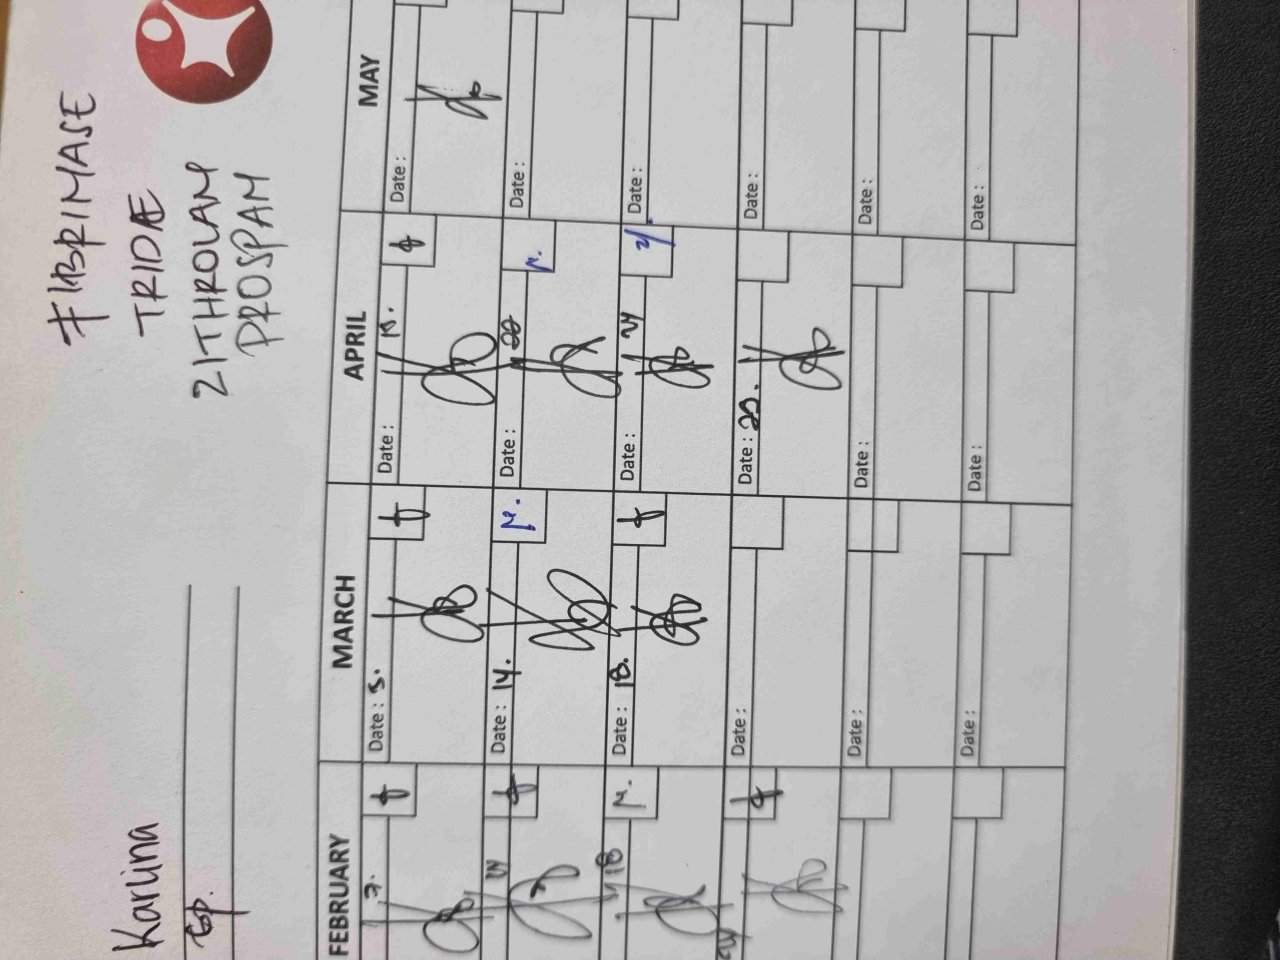 Karlina
GP.
FIBRIMASE
TRIDAE
ZITHROLAM
PROSPAM
FEBRUARY MARCH APRIL MAY
7. Date : 5. Date : 15. Date :
14 Date : 14. Date : 20 Date :
18 Date : 18. Date : 24 Date :
24 Date : Date : 29. Date :
Date : Date : Date :
Date : Date : Date :